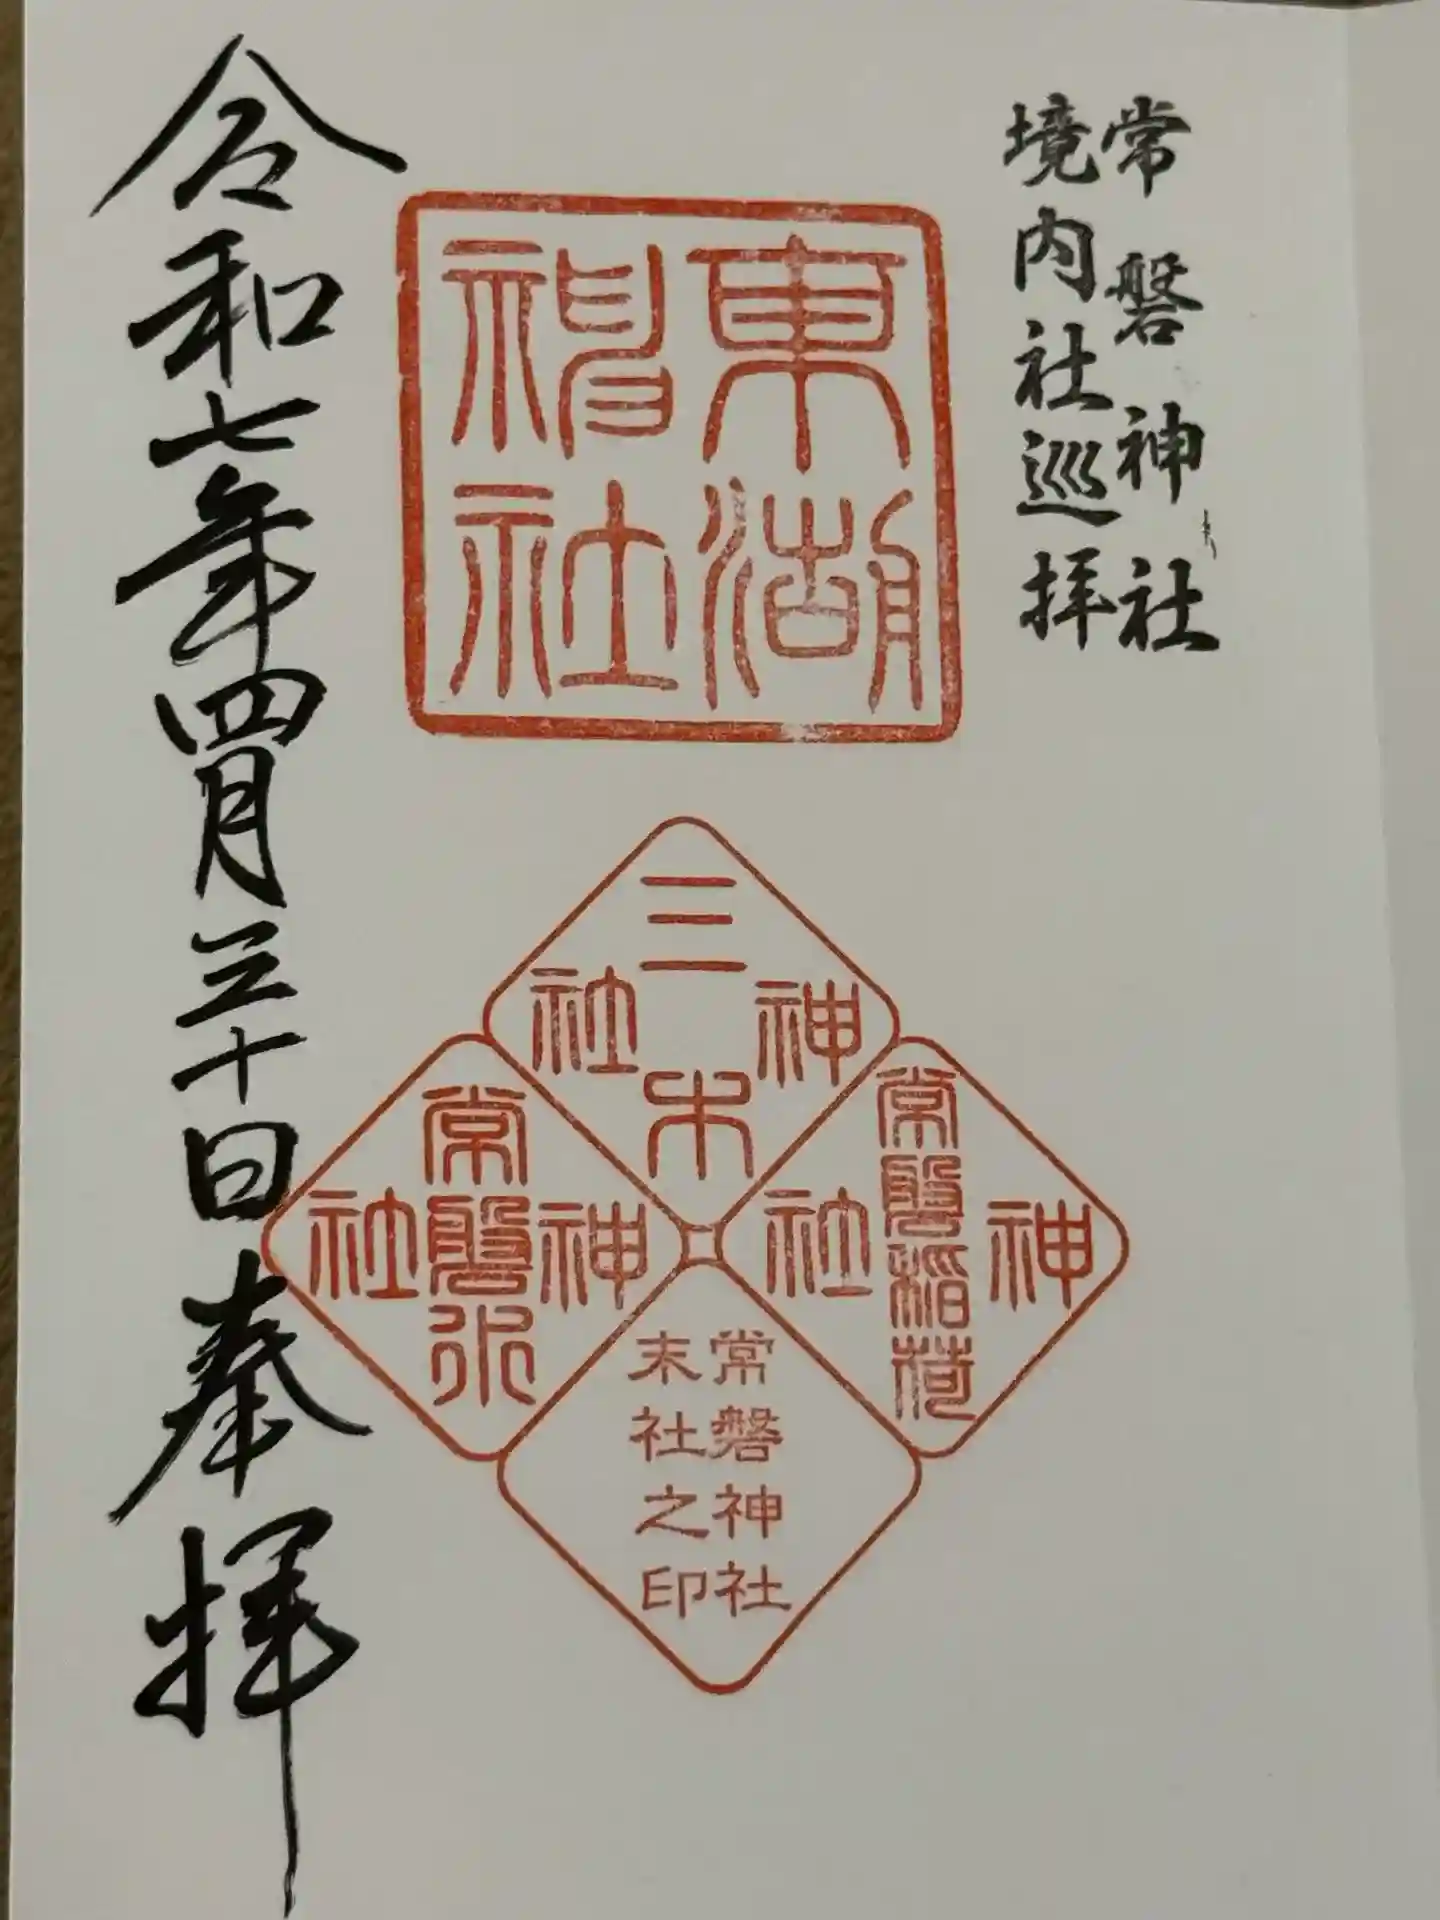 常磐神社
境内社巡拝
東湖
神社
三木
神社
常磐稲荷
神社
常磐水
神社
常磐神社
末社之印
令和七年四月三十日奉拝